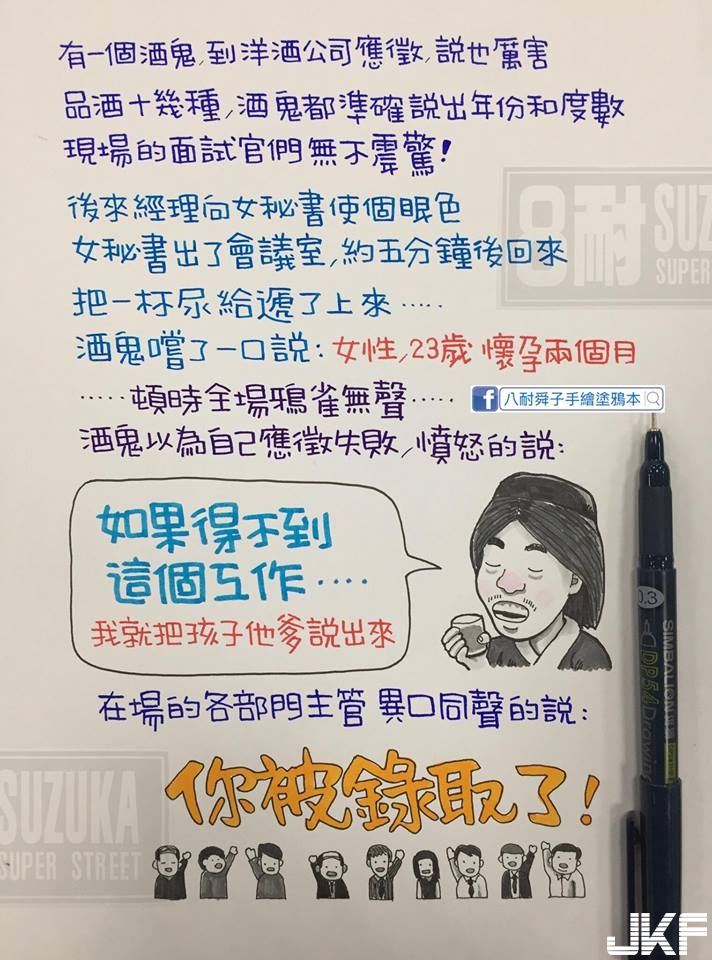 有一個酒鬼,到洋酒公司應徵,說也厲害
品酒十幾種,酒鬼都準確說出年份和度數
現場的面試官們無不震驚!
8耐 SUZU
SUPER
後來經理向女秘書使個眼色
女秘書出了會議室,約五分鐘後回來
把一杯尿給遞了上來.....
酒鬼嚐了一口說:女性,23歲 懷孕兩個月
.....頓時全場鴉雀無聲.....
f 八耐舜子手繪塗鴉本
酒鬼以為自己應徵失敗,憤怒的說:
如果得不到
這個工作....
我就把孩子他爹說出來
0.3
SIMBALION 雄獅
DP54 Drawing
在場的各部門主管 異口同聲的說:
SUZUKA
SUPER STREET
你被錄取了!
JKF